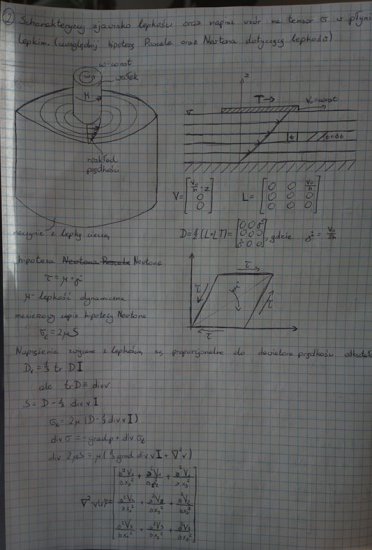 2) Scharakteryzuj zjawisko lepkości oraz napisz wzór na tensor σ w płynie
lepkim. (uwzględnij hipotezę Pascala oraz Newtona dotyczącą lepkości)
ω=const
wałek
M
rozkład
prędkości
naczynie z lepką cieczą
z
T →
v₀=const
V = [v₀/h · z, 0, 0]
L = [0 0 v₀/h; 0 0 0; 0 0 0]
D = ½(L+LT) = , gdzie γ̇ = v₀/h
hipoteza Newtona
τ = μ·γ̇
μ - lepkość dynamiczna
macierzowy zapis hipotezy Newtona
σ = 2μS
τ
τ
τ
γ
Naprężenia związane z lepkością są proporcjonalne do dewiatora prędkości odkształc
D = ⅓ tr D I
ale tr D = div v
S = D - ⅓ div v I
σ = 2μ(D - ⅓ div v I)
div σ = -grad p + div σ
div 2μS = μ(⅓ grad div v I + ∇²v)